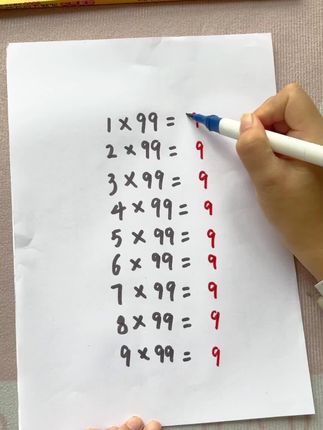 1 × 99 =
2 × 99 = 9
3 × 99 = 9
4 × 99 = 9
5 × 99 = 9
6 × 99 = 9
7 × 99 = 9
8 × 99 = 9
9 × 99 = 9